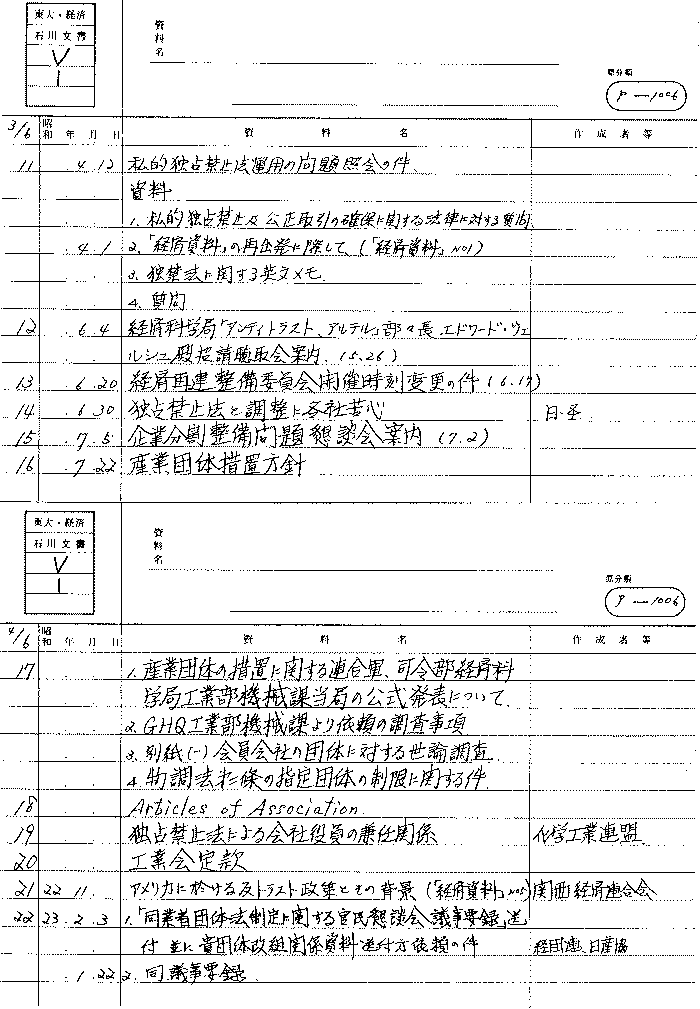 東大・経済
石川文書
V
1
資料名
原分類
P-1006
3/6 昭和 年 月 日 資料名 作成者等
11 . 4. 12 私的独占禁止法運用の問題照会の件
資料
1. 私的独占禁止及公正取引の確保に関する法律に対する質問
. 4. 1 2. 「経済資料」の再出発に際して (「経済資料」No1)
3. 独禁法に関する英文メモ
4. 質問
12 . 6. 4 経済科学局「アンティトラスト、カルテル」部々長 エドワード・ウェ
ルシュ殿招請聴取会案内 (5.26)
13 . 6. 20 経済再建整備委員会開催時刻変更の件 (6.17)
14 . 6. 30 独占禁止法と調整に各社苦心
15 . 7. 5 企業分割整備問題懇談会案内 (7.2)
16 . 7. 22 産業団体措置方針
東大・経済
石川文書
V
1
資料名
原分類
P-1006
4/6 昭和 年 月 日 資料名 作成者等
17 1. 産業団体の措置に関する連合軍、司令部経済科
学局工業部機械課当局の公式発表について
2. GHQ工業部機械課より依頼の調査事項
3. 別紙(一) 会員会社の団体に対する世論調査
4. 物調法第 條の指定団体の制限に関する件
18 Articles of Association
19 独占禁止法による会社役員の兼任関係 化学工業連盟
20 工業会定款
21 22 11. アメリカに於ける反トラスト政策とその背景 (「経済資料」No5)関西経済連合会
22 23. 2. 3 1. 「同業者団体法制定に関する官民懇談会議事要録」送
付並に貴団体改組関係資料送付方依頼の件 経団連、日産協
. 1. 22 2. 同議事要録